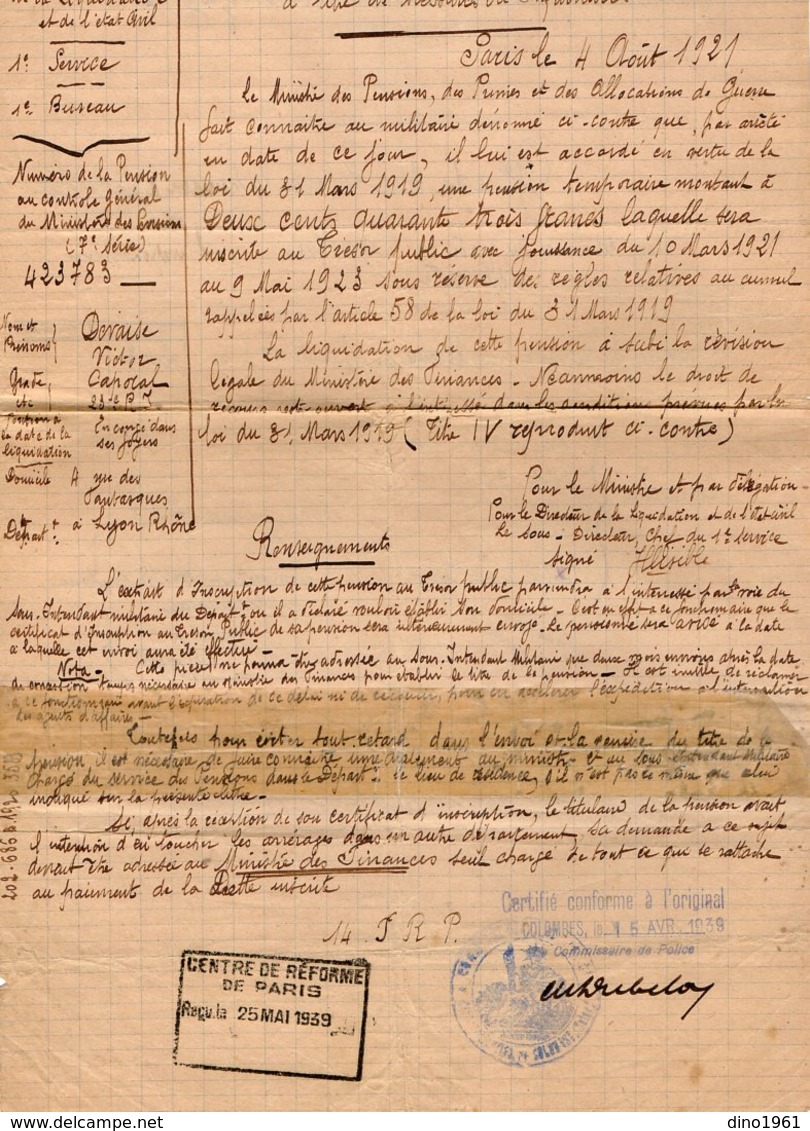 et de l'état Civil
1er Service
1er Bureau
Numéro de la Pension
au contrôle Général
du Ministère des Pensions
(7e série)
423783
Nom et
Prénoms
Devaise
Victor
Grade,
etc
Caporal
23e R I
Position à
la date de la
liquidation
En congé dans
ses foyers
Domicile 4 rue des
Départt à Lyon Rhône
Paris le 4 Août 1921
Le Ministre des Pensions, des Primes et des Allocations de Guerre
fait connaître au militaire dénommé ci-contre que, par arrêté
en date de ce jour, il lui est accordé en vertu de la
loi du 31 Mars 1919, une pension temporaire montant à
Deux cent quarante trois francs laquelle sera
inscrite au Trésor public avec jouissance du 10 Mars 1921
au 9 Mai 1923 sous réserve des règles relatives au cumul
rappelées par l'article 58 de la loi du 31 Mars 1919
La liquidation de cette pension a subi la révision
légale du Ministère des Finances - Néanmoins le droit de
recours reste ouvert à l'intéressé dans les conditions prévues par la
loi du 31 Mars 1919 (Titre IV reproduit ci-contre)
Pour le Ministre et par délégation
Pour le Directeur de la Liquidation et de l'état civil
Le Sous-Directeur, Chef du 1er service
signé Illisible
Renseignements
L'extrait d'Inscription de cette pension au Trésor public parviendra à l'intéressé par la voie du
Sous-Intendant militaire du Départt où il a déclaré vouloir établir son domicile - C'est en effet à ce fonctionnaire que le
certificat d'Inscription au Trésor Public de sa pension sera ultérieurement envoyé - Le pensionné sera avisé à la date
à laquelle cet envoi aura été effectué -
Nota - Cette pièce ne pourra être adressée au Sous-Intendant Militaire que deux mois environ après la date
de concession temps nécessaire au Ministère des Finances pour établir le titre de la pension - Il est inutile de réclamer
à ce fonctionnaire avant l'expiration de ce délai ni de recourir, pour en accélérer l'expédition à l'intervention
des agents d'affaires -
Toutefois pour éviter tout retard dans l'envoi et la remise du titre de la
pension, il est nécessaire de faire connaître immédiatement au ministre et au sous-intendant militaire
chargé du service des Pensions dans le Départt le lieu de résidence, s'il n'est pas le même que celui
indiqué sur la présente lettre -
Si, après la réception de son certificat d'inscription, le titulaire de la pension avait
l'intention d'en toucher les arrérages dans un autre département, sa demande à ce sujet
devrait être adressée au Ministre des Finances seul chargé de tout ce qui se rattache
au paiement de la Dette inscrite
14 F R P.
Certifié conforme à l'original
COLOMBES, le 15 AVR. 1939
Le Commissaire de Police
CENTRE DE RÉFORME
DE PARIS
Reçu le 25 MAI 1939
dino1961